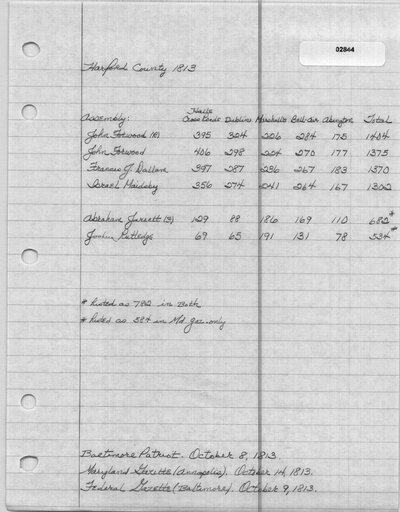 02844
Harford County 1813
Assembly: Halls Cross Roads Dublin Marshalls Bell-Air Abington Total
John Forwood (R) 395 324 226 284 175 1404
John Forwood 406 298 224 270 177 1375
Francis J. Dallam 397 287 236 267 183 1370
Israel Maulsby 356 274 241 264 167 1302
Abraham Jarrett (3) 129 88 186 169 110 682*
Joshua Rutledge 69 65 191 131 78 534*
* Listed as 782 in Both
* Listed as 584 in Md gaz. only
Baltimore Patriot. October 8, 1813.
Maryland Gazette (Annapolis). October 14, 1813.
Federal Gazette (Baltimore). October 9, 1813.